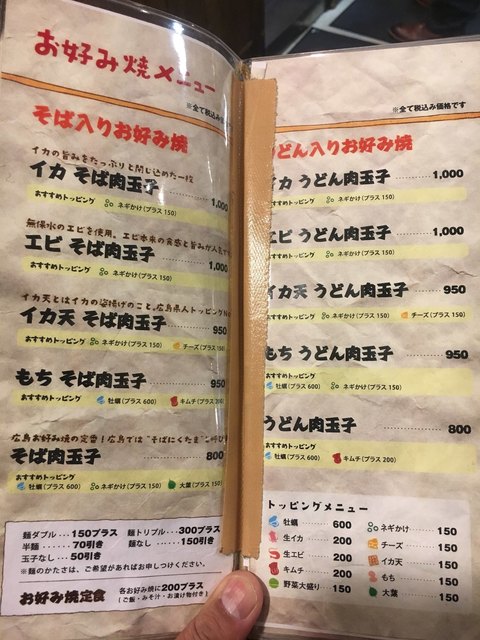 お好み焼メニュー
※全て税込み価
そば入りお好み焼
イカの旨みをたっぷりと閉じ込めた一枚
イカ そば肉玉子 1,000
おすすめトッピング ネギかけ(プラス 150)
無保水のエビを使用。エビ本来の食感と旨みが人気で
エビ そば肉玉子 1,000
おすすめトッピング ネギかけ(プラス 150)
イカ天とはイカの姿揚げのこと。広島県人トッピングNo
イカ天 そば肉玉子 950
おすすめトッピング ネギかけ(プラス 150) チーズ(プラス 150)
もち そば肉玉子 950
おすすめトッピング 牡蠣(プラス 600) キムチ(プラス 200)
広島お好み焼の定番!広島では"そばにくたま"と呼び
そば肉玉子 800
おすすめトッピング
牡蠣(プラス 600) ネギかけ(プラス 150) 大葉(プラス 150)
麺ダブル ・・・150プラス 麺トリプル・・・300プラス
半麺 ・・・・・・70引き 麺なし ・・・・150引き
玉子なし・・・50引き
※麺のかたさは、ご希望があればお申しつけください。
お好み焼定食 各お好み焼に200プラス
(ご飯・みそ汁・お漬け物付き)
※全て税込み価格です
うどん入りお好み焼
イカ うどん肉玉子 1,000
おすすめトッピング ネギかけ(プラス 150)
エビ うどん肉玉子 1,000
おすすめトッピング ネギかけ(プラス 150)
イカ天 うどん肉玉子 950
おすすめトッピング ネギかけ(プラス 150) チーズ(プラス 150)
もち うどん肉玉子 950
おすすめトッピング
牡蠣(プラス 600) ネギかけ(プラス 150)
うどん肉玉子 800
おすすめトッピング
牡蠣(プラス 600) キムチ(プラス 200)
トッピングメニュー
牡蠣 600
生イカ 200
生エビ 200
キムチ 200
野菜大盛り 150
ネギかけ 150
チーズ 150
イカ天 150
もち 150
大葉 150